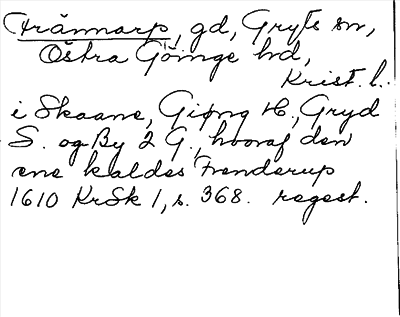 Främmarp, gd, Gryts sn,
Östra Göinge hd,
Krist. l.
i Skaane, Giøng H., Gryd
S. og By 2 G., hvoraf den
ene kaldes Frenderup
1610 KrSk 1, s. 368. regest.